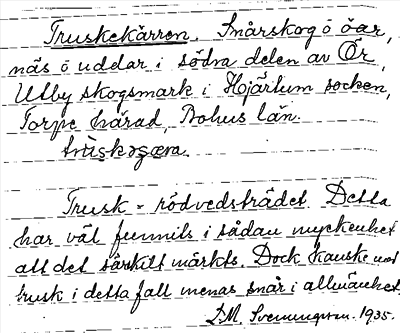 Truskekärren. Snårskog ö öar,
näs ö uddar i södra delen av Ör,
Ulby skogsmark i Hjärtum socken,
Torpe härad, Bohus län.
Trusk = rödvedsträdet. Detta
har väl funnits i sådan myckenhet
att det särskilt märkts. Dock kanske
trusk i detta fall menas snår i allmänhet.
D.M. Svenningson. 1935.